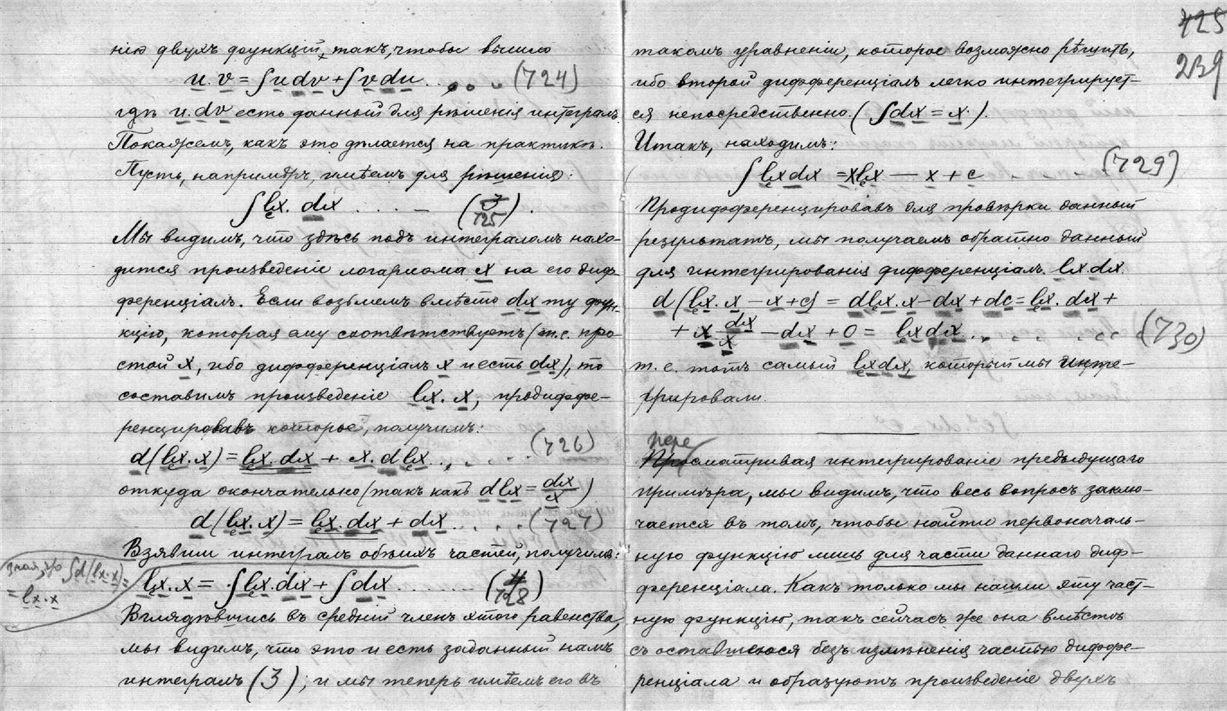 нію двухъ функцій, такъ, чтобы вышло
u.v = ∫udv + ∫vdu . . . . (724)
гдѣ u.dv есть данный для рѣшенія интегралъ.
Покажемъ, какъ это дѣлается на практикѣ.
Пусть, напримѣръ, имѣемъ для рѣшенія:
∫lx. dx . . . . – (725).
Мы видимъ, что здѣсь подъ интеграломъ нахо-
дится произведеніе логариѳма x на его диф-
ференціалъ. Если возьмемъ вмѣсто dx ту фун-
кцію, которая ему соотвѣтствуетъ (т.е. про-
стой x, ибо дифференціалъ x и есть dx), то
составимъ произведеніе lx. x, продиффе-
ренцировавъ которое, получимъ:
d(lx.x) = lx. dx + x. dlx . , . . . (726)
откуда окончательно (такъ какъ dlx = dx/x)
d(lx.x) = lx. dx + dx . . . . (727)
Взявши интегралъ обѣихъ частей, получимъ:
зная, что ∫d(lx.x) =
= lx.x
lx.x = ∫lx.dx + ∫dx . . . . . . (728)
Вглядѣвшись въ средній членъ этого равенства,
мы видимъ, что это и есть заданный намъ
интегралъ (3); и мы теперь имѣемъ его въ
725
239
такомъ уравненіи, которое возможно рѣшить,
ибо второй дифференціалъ легко интегрирует-
ся непосредственно. (∫dx = x.).
Итакъ, находимъ:
∫lxdx = xlx — x + c . . . (729)
Продифференцировавъ для провѣрки данный
результатъ, мы получаемъ обратно данный
для интегрированія дифференціалъ. lxdx
d(lx.x – x + c) = dlx.x – dx + dc = lx. dx +
+ x dx/x – dx + 0 = lxdx . . . . . . (730)
т.е. тотъ самый lxdx, который мы инте-
грировали.
Пересматривая интегрированіе предыдущаго
примѣра, мы видимъ, что весь вопросъ заклю-
чается въ томъ, чтобы найти первоначаль-
ную функцію лишь для части даннаго диф-
ференціала. Какъ только мы нашли эту част-
ную функцію, такъ сейчасъ же она вмѣстѣ
съ оставшеюся безъ измѣненія частью диффе-
ренціала и образуютъ произведеніе двухъ